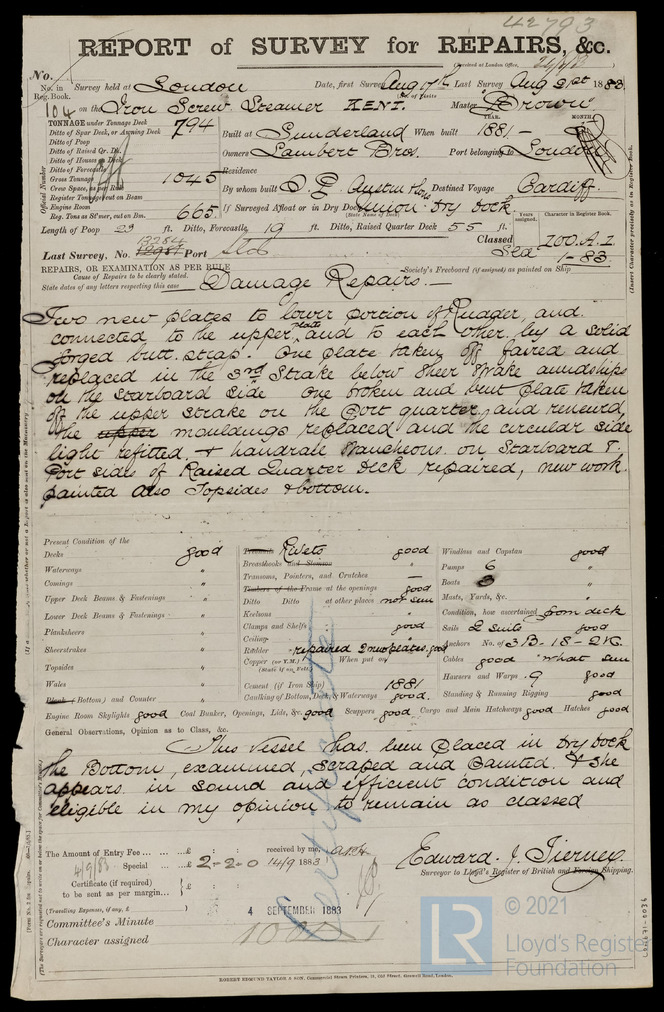 42793
REPORT of SURVEY for REPAIRS, &c.
(Received at London Office,
No.
No. in Reg. Book. Survey held at London Date, first Survey Aug 17th Last Survey Aug 21st 1883.
104 on the Iron Screw Steamer KENT. Master Brown
TONNAGE under Tonnage Deck 794
Ditto of Spar Deck, or Awning Deck
Ditto of Poop
Ditto of Raised Qr. Dk.
Ditto of Houses on Deck
Ditto of Forecastle
Gross Tonnage 1045
Crew Space, as per Rule
Register Tonnage cut on Beam
Engine Room
Reg. Tons as St'mer, cut on Bm. 665.
YEAR. MONTH.
Built at Sunderland When built 1881 -
Owners Lambert Bros. Port belonging to London
Residence
By whom built S. P. Austin & Son Destined Voyage Cardiff.
If Surveyed Afloat or in Dry Dock Union Dry Dock.
(State Name of Dock)
Length of Poop 29 ft. Ditto, Forecastle 19 ft. Ditto, Raised Quarter Deck 55 ft.
Years assigned. Character in Register Book.
Classed 100.A.1.
Last Survey, No. Port Sld 1-83
REPAIRS, OR EXAMINATION AS PER RULE
Society's Freeboard (if assigned) as painted on Ship
Cause of Repairs to be clearly stated.
State dates of any letters respecting this case
Damage Repairs. —
Two new plates to lower portion of Rudder, and
connected to the upper plate and to each other by a solid
forged butt strap. One plate taken off faired and
replaced in the 3rd Strake below Sheer Strake amidships
on the starboard side One broken and bent plate taken
off the upper strake on the Port quarter and renewed,
the upper mouldings replaced and the circular side
light refitted, & handrale stancheons on Starboard &
Port sides of Raised Quarter deck repaired, new work
painted also Topsides & bottom.
Present Condition of the
Decks good
Waterways "
Comings "
Upper Deck Beams & Fastenings "
Lower Deck Beams & Fastenings "
Planksheers "
Sheerstrakes "
Topsides "
Wales "
Plank (Bottom) and Counter "
Engine Room Skylights good Coal Bunker, Openings, Lids, &c. good Scuppers good Cargo and Main Hatchways good Hatches good
Treenails Rivets good
Breasthooks and Stemson "
Transoms, Pointers, and Crutches —
Timbers of the Frame at the openings good
Ditto Ditto at other places not seen
Keelsons "
Clamps and Shelfs good
Ceiling "
Rudder repaired 2 new plates, good
Copper (or Y.M.) When put on
(State if on Felt)
Cement (if Iron Ship) 1881
Caulking of Bottom, Deck, & Waterways good.
Windlass and Capstan good
Pumps 6 "
Boats 3 "
Masts, Yards, &c. "
Condition, how ascertained from deck
Sails 2 suits good
Anchors No. of 3 B. 1 S - 2 K.
Cables good what seen
Hawsers and Warps 9 good
Standing & Running Rigging good
General Observations, Opinion as to Class, &c.
This Vessel has been placed in Dry Dock
the Bottom, examined, scraped and painted & she
appears in sound and efficient condition and
eligible in my opinion to remain as classed
The Amount of Entry Fee ... £ : : received by me,
4/9/83 Special ... £ 2-2-0 14/9 1883
Certificate (if required) to be sent as per margin...
(Travelling Expenses, if any, £
Edward J. Tierney.
Surveyor to Lloyd's Register of British and Foreign Shipping.
Committee's Minute 4 SEPTEMBER 1883
Character assigned 100A1
Certificate
ROBERT EDMUND TAYLOR & SON, Commercial Steam Printers, 19, Old Street, Goswell Road, London.
LR
© 2021
Lloyd's Register
Foundation